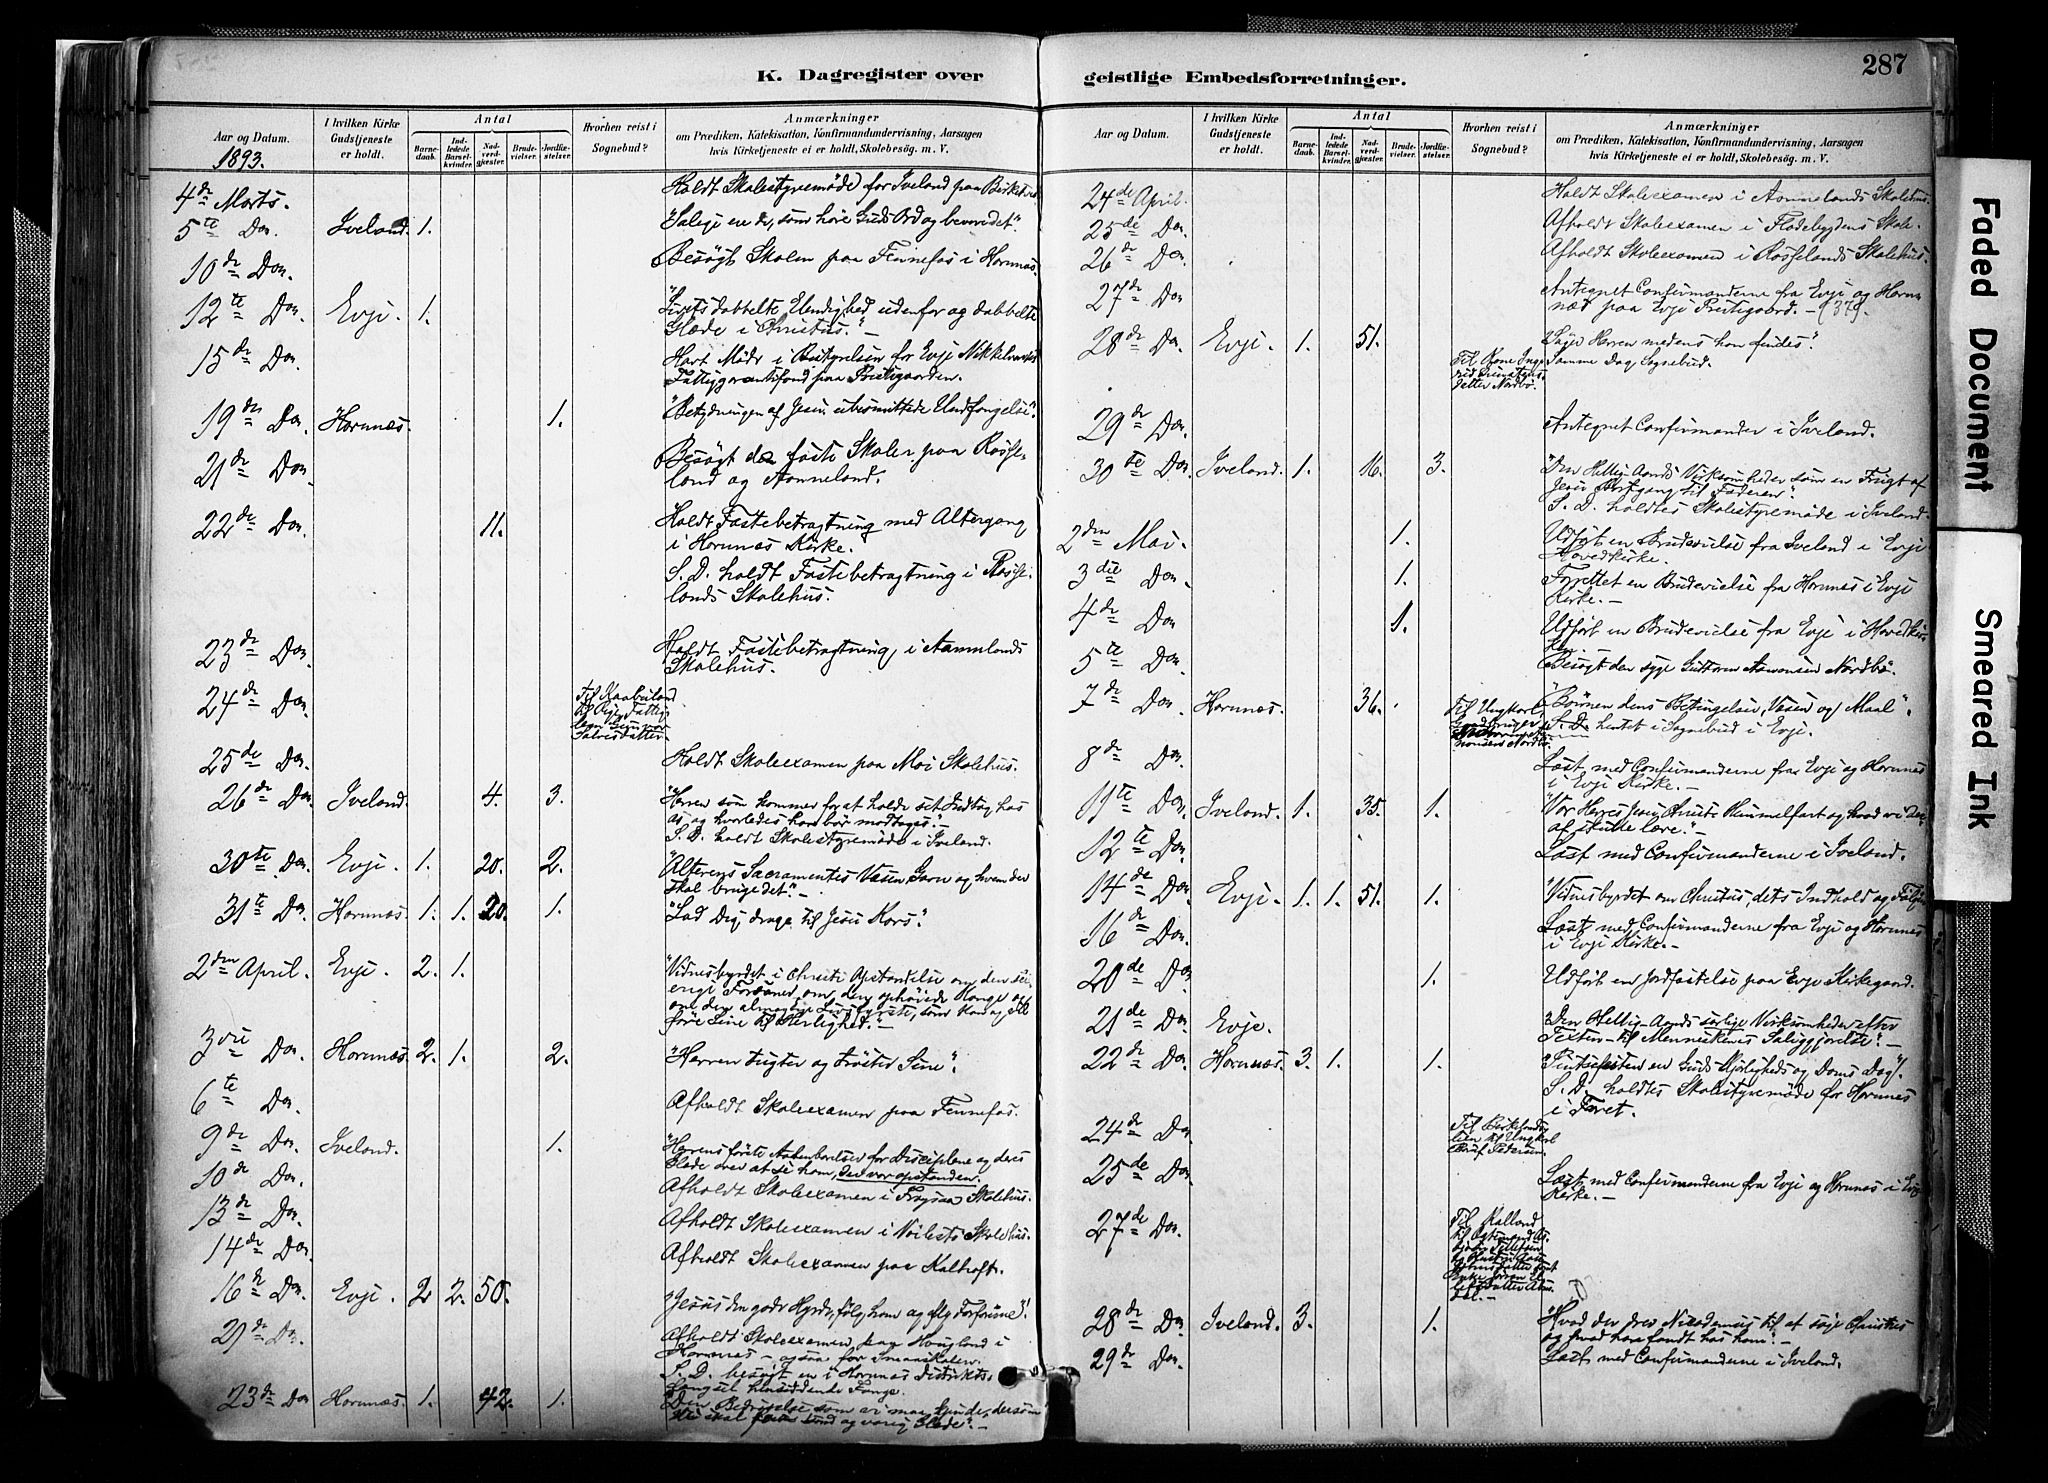 K. Dagregister over
Aar og Datum.
I hvilken Kirke Gudstjeneste er holdt.
Antal
Barnedaab.
Indledede Barselkvinder.
Nadverdgjester.
Brudevielser.
Jordfæstelser.
Hvorhen reist i Sognebud?
Anmærkninger
om Prædiken, Katekisation, Konfirmandundervisning, Aarsagen
hvis Kirketjeneste ei er holdt, Skolebesøg. m. V.
1893.
4de Marts. Holdt Skolestyremöde for Iveland paa Birketveit
5te Do. Iveland. 1. "Salige ere de, som höre Guds Ord og bevare det".
10de Do. Besögt Skolen paa Fennefos i Hornnæs.
12te Do. Evje. 1. "Livets dobbelte Elendighed udenfor og dobbelte
Glæde i Christus."
15de Do. Havt Möde i Bestyrelsen for Evje Nikkelværks
Fattiggarantifond paa Præstegaarden.
19de Do. Hornnæs. 1. "Betydningen af Jesu ubesmittede Undfangelse".
21de Do. Besögt de faste Skoler paa Rosse-
land og Aanneland.
22de Do. 11. Holdt Fastebetragtning med Altergang
i Hornnæs Kirke.
S. D. holdt Fastebetragtning i Rosse-
lands Skolehus.
23de Do. Holdt Fastebetragtning i Aannelands
Skolehus.
24de Do. Til Kaabuland
til Pige Fattig-
lem Gunvor
Salvesdatter
25de Do. Holdt Skoleexamen paa Moi Skolehus.
26de Do. Iveland. 4. 3. "Herren som kommer for at holde sit Indtog hos
os og hvorledes han bör modtages."
S. D. holdt Skolestyremöde i Iveland.
30te Do. Evje. 1. 20. 2. "Alterens Sacramentes Væsen, Gavn og hvem der
skal bruge det."
31te Do. Hornnæs. 1. 1. 20. 1. "Lad Dig drage til Jesu Kors."
2den April. Evje. 2. 1. "Vidnesbyrdet i Christi Opstandelse om den sei-
erige Forsoner, om den ophöiede Konge og
om den almægtige Livsfyrste, som kan og vil
före Sine til Herlighed."
3die Do. Hornnæs. 2. 1. 2. "Herren tugter og tröster Sine".
6te Do. Afholdt Skoleexamen paa Fennefos.
9de Do. Iveland. 1. "Herrens förste Aabenbarelser for Disciplene og deres
Glæde over at se ham, der var opstanden.
10de Do. Afholdt Skoleexamen i Frøysaa Skolehus.
13de Do. Afholdt Skoleexamen i Voilests Skolehus.
14de Do. Afholdt Skoleexamen paa Kalhoft.
16de Do. Evje. 2. 2. 50. "Jesus den gode Hyrde, fölg ham og fly Forförerne".
21de Do. Afholdt Skoleexamen paa Houglond i
Hornnæs - ogsaa for Smaaskolen.
S. D. besögt en i Hornnæs Distrikts-
fængsel hensiddende Fange.
23de Do Hornnæs. 1. 42. 1. Den Bedrövelse som vi maa kjende, dersom
vi skal faae sand og varig Glæde".
geistlige Embedsforretninger.
287
Aar og Datum.
I hvilken Kirke Gudstjeneste er holdt.
Antal
Barnedaab.
Indledede Barselkvinder.
Nadverdgjester.
Brudevielser.
Jordfæstelser.
Hvorhen reist i Sognebud?
Anmærkninger
om Prædiken, Katekisation, Konfirmandundervisning, Aarsagen
hvis Kirketjeneste ei er holdt, Skolebesøg. m. V.
24de April. Holdt Skoleexamen i Aannelands Skolehus.
25de Do. Afholdt Skoleexamen i Flatebygdens Skole.
26de Do. Afholdt Skoleexamen i Rosselands Skolehus.
27de Do. Antegnet Confirmanderne fra Evje og Horn-
næs paa Evje Prestegaard. - (37).
28de Do. Evje. 1. 51. "Søge Herren medens han findes".
Til Kone Inge- Samme Dag Sognebud.
datter Nordbö.
29de Do. Antegnet Confirmander i Iveland.
30te Do. Iveland. 1. 16. 3. "Den Hellig Aands Virksomheder som en Frugt af
Jesu Bortgang til Faderen".
S. D. holdtes Skolestyremöde i Iveland.
2den Mai. 1. Udfört en Brudevielse fra Iveland i Evje
Hovedkirke.
3die Do. 1. Forrettet en Brudevielse fra Hornnæs i Evje
Kirke.
4de Do 1. Udfört en Brudevielse fra Evje i Hovedkir-
ken.
5te Do. Besögt den syge Guttorm Aanonsen Nordbö.
7de Do. Hornnæs. 36. "Bönnen dens Betingelse, Væsen og Maal".
Til Ungkarl S. D. hentet i Sognebud i Evje.
8de Do. Læst med Confirmanderne fra Evje og Hornnæs
i Evje Kirke.
11te Do. Iveland. 1. 35. 1. "Vor Herres Jesu Christi Himmelfart og hvad vi der-
af skulle lære."
12te Do. Læst med Confirmanderne i Iveland.
14de Do. Evje. 1. 1. 51. 1. "Vidnesbyrdet om Christus, dets Indhold og Fölger
16de Do. Læst med Confirmanderne fra Evje og Hornnæs
i Evje Kirke.
20de Do. 1. Udfört en Jordfæstelse paa Evje Kirkegaard.
21de Do. Evje. "Den Hellig-Aands særlige Virksomheder efter
Texten - til Menneskenes Saliggjörelse".
22de Do. Hornnæs. 3. 1. 1. "Pintsefesten en Guds Kjærligheds og Doms Dag".
S. D. holdtes Skolestyremöde for Hornnæs
i Foret.
24de Do. Til Birkeland
lien til Ungkarl
Pedersen.
25de Do. Læst med Confirmanderne fra Evje og Hornnæs i Evje
Kirke.
27de Do. Til Kalland
28de Do. Iveland. 3. 1. "Hvad der drev Nicodemus til at søge Christus
og hvad han fandt hos ham".
29de Do. Læst med Confirmanderne i Iveland.
Faded Document
Smeared Ink